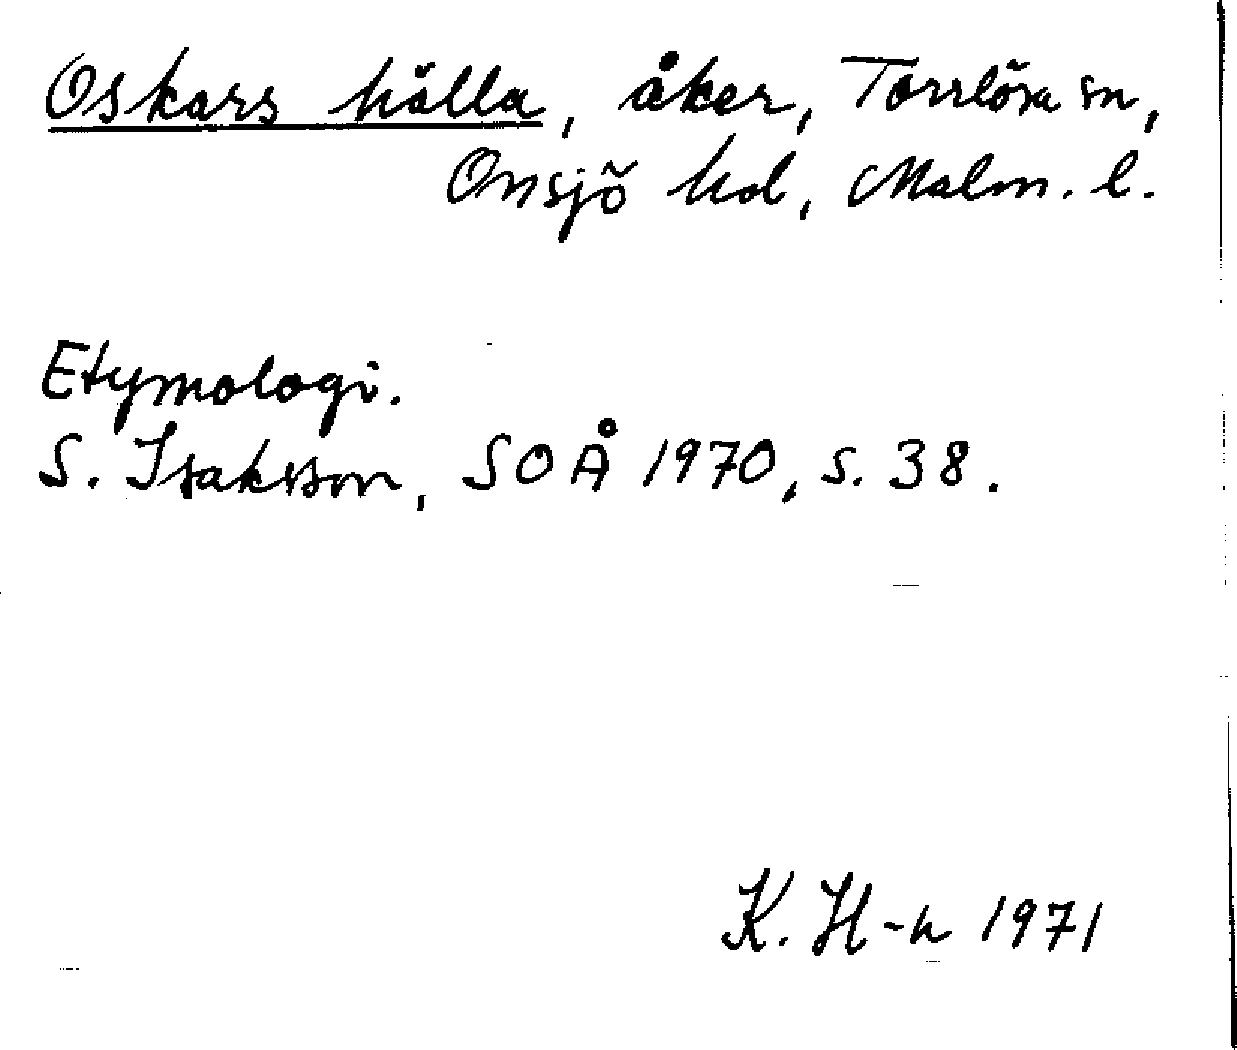 Oskars hålla, åker, Torrlösa sn,
Onsjö hd, Malm. l.
Etymologi.
S. Isaksson, SOÅ 1970, s. 38.
K. H-n 1971